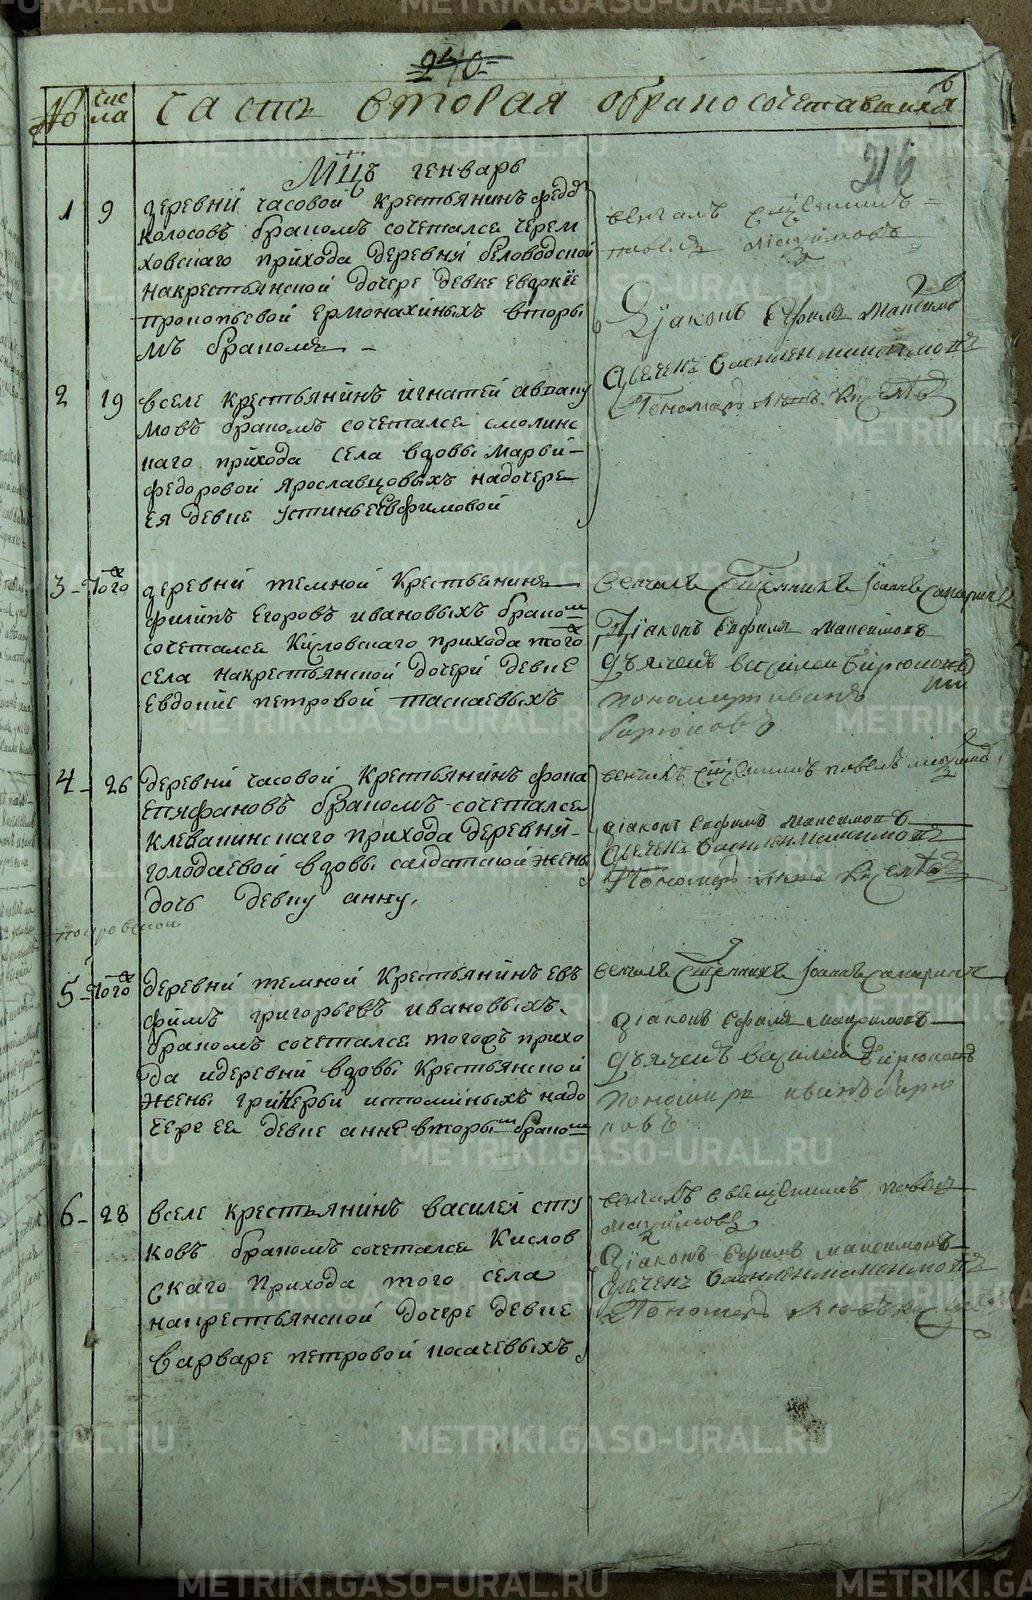 240
№ чис ла часть вторая обрачносочетавшихся
216
мцъ генварь
1 9 деревни часовой крестьянинъ федд
колосовъ бракомъ сочетался черем
ховскаго прихода деревни беловодской
накрестьянской дочере девке евдокіе
прокопьевой ермонахиныхъ вторы
мъ бракомъ
венчалъ священникъ
павелъ максимовъ
Діаконъ Ефимъ Максимо
дьячекъ василей
Пономарь
2 19 вселе крестьянинъ игнатей авваку
мовъ бракомъ сочетался смолинс
каго прихода села вдовы марьи
федоровой ярославцовыхъ надочере
ея девке устинье ефимовой
3 того деревни темной крестьянинъ
филипъ егоровъ ивановыхъ бракомъ
сочетался кисловскаго прихода того
села накрестьянской дочери девке
евдокіе петровой таскаевыхъ
венчалъ священникъ Іоаннъ
Діаконъ Ефимъ Максимовъ
дьячекъ василей Бирюковъ
пономарь иванъ
Бирюковъ
4 26 деревни часовой крестьянинъ фока
епифановъ бракомъ сочетался
клевакинскаго прихода деревни
голодаевой вдовы салдатской жены
дочь девку анну
венчалъ священникъ павелъ максимовъ
діаконъ ефимъ максимовъ
дьячекъ василей
Пономарь
5 того деревни темной крестьянинъ ев
фимъ григорьевъ ивановыхъ
бракомъ сочетался тогожъ прихо
да идеревни вдовы крестьянской
жены гликерьи истоминыхъ надо
чере ее девке анне вторымъ бракомъ
венчалъ священникъ Іоаннъ
діаконъ Ефимъ максимовъ
дьячекъ василей Бирюковъ
пономарь иванъ бирю
ковъ
6 28 вселе крестьянинъ василей сту
ковъ бракомъ сочетался кислов
скаго прихода того села
накрестьянской дочере девке
варваре петровой косачевыхъ
венчалъ священникъ павелъ
максимовъ
Діаконъ Ефимъ максимовъ
дьячекъ василей
Пономарь
METRIKI.GASO-URAL.RU